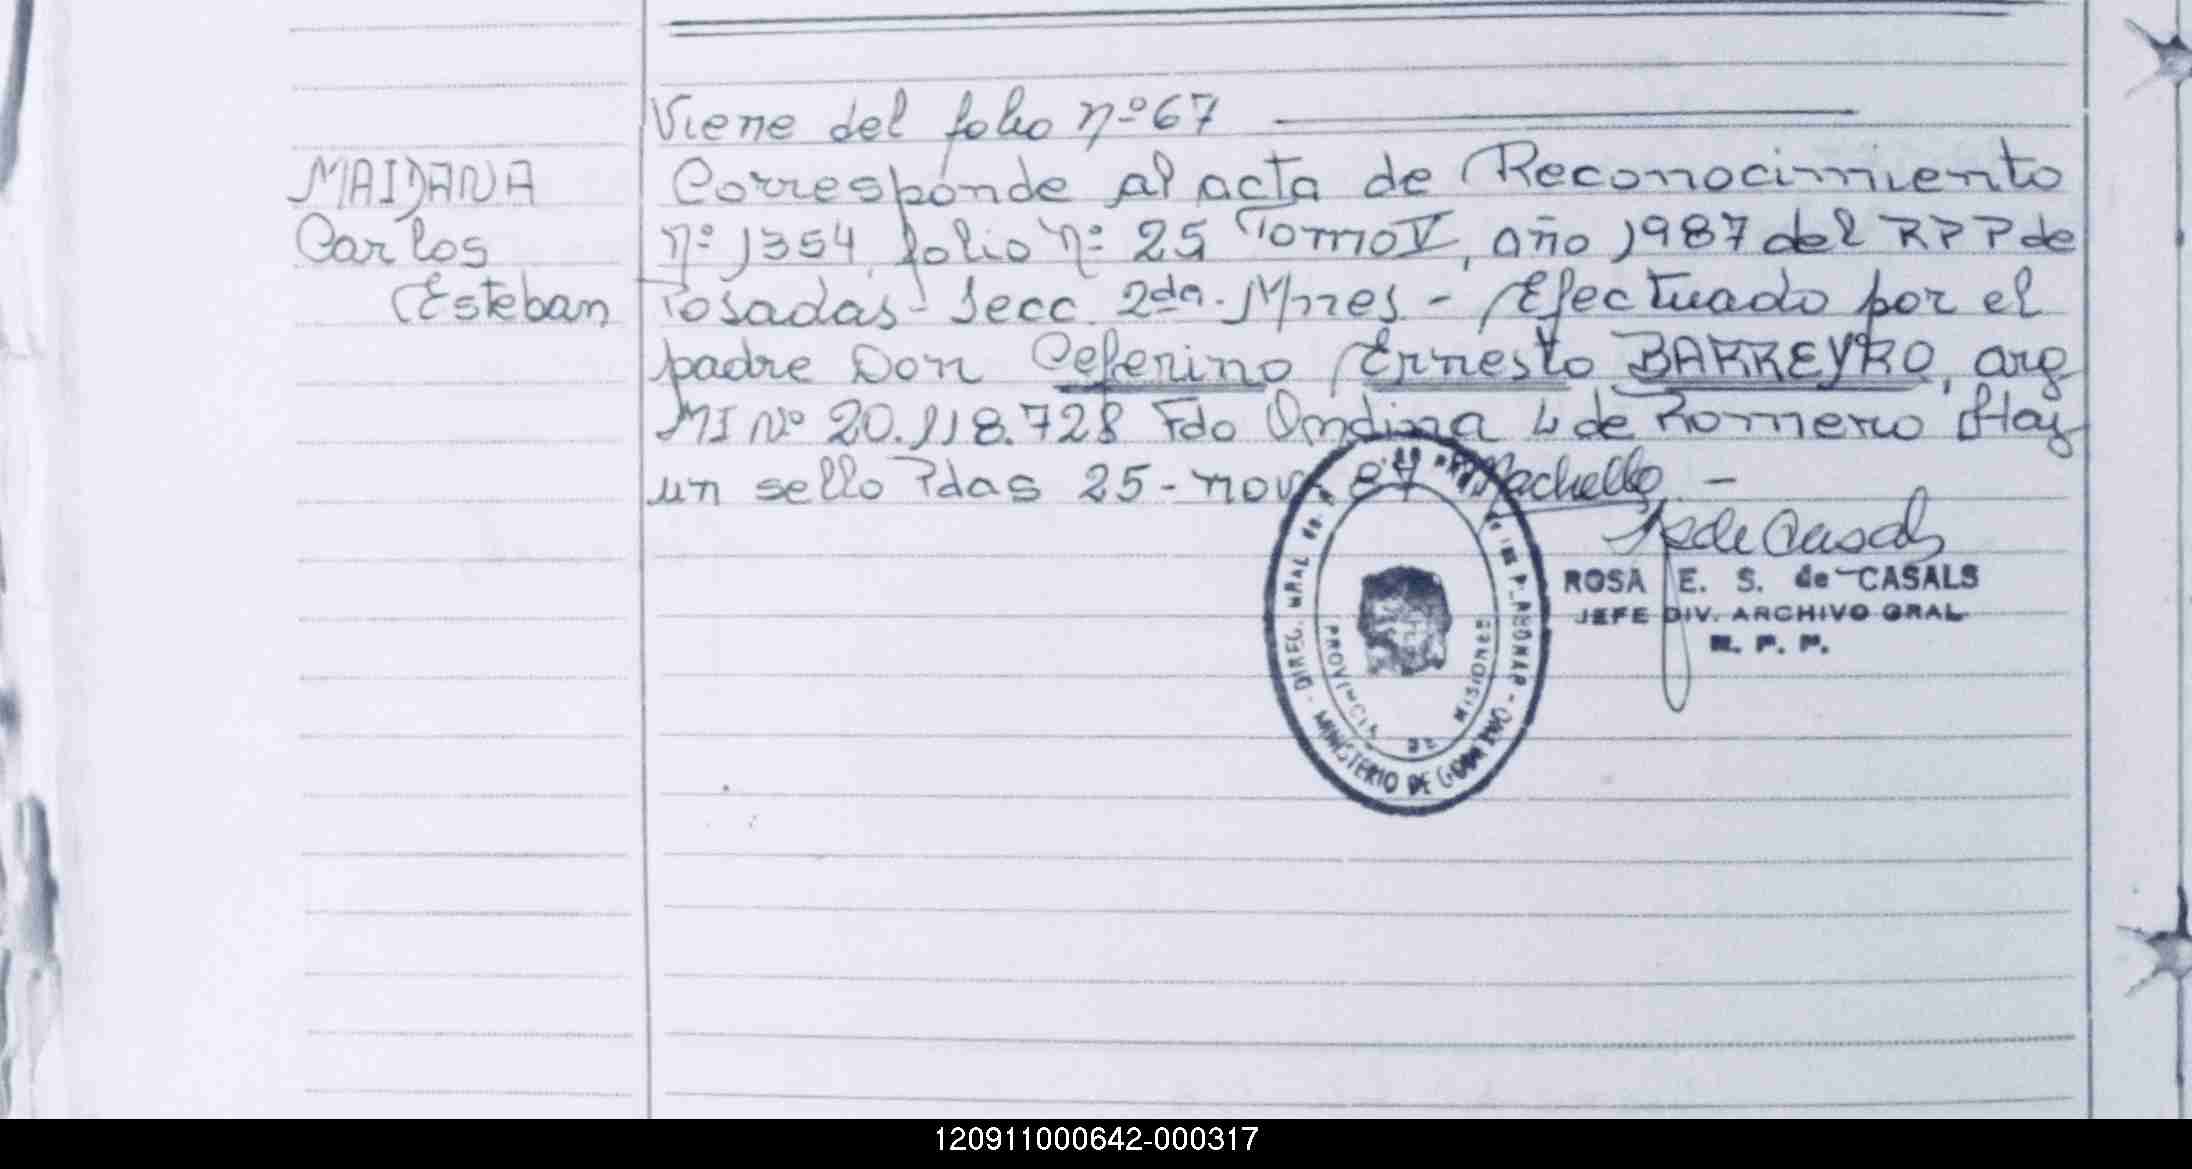 Viene del folio nº 67
MAIDANA
Carlos
Esteban
Corresponde al acta de Reconocimiento
nº 1354, folio nº 25 Tomo V, año 1987 del RPP de
Posadas - Secc. 2da. Mnes - Efectuado por el
padre Don Ceferino Ernesto BARREYRO, arg
MI Nº 20.118.728 Fdo Ondina L de Romero Hay
un sello Pdas 25 - nov 87
de Casals
ROSA E. S. de CASALS
JEFE DIV. ARCHIVO GRAL
R. P. P.
DIREC. GRAL de
MINISTERIO DE GOBIERNO
PROVINCIA DE MISIONES
120911000642-000317